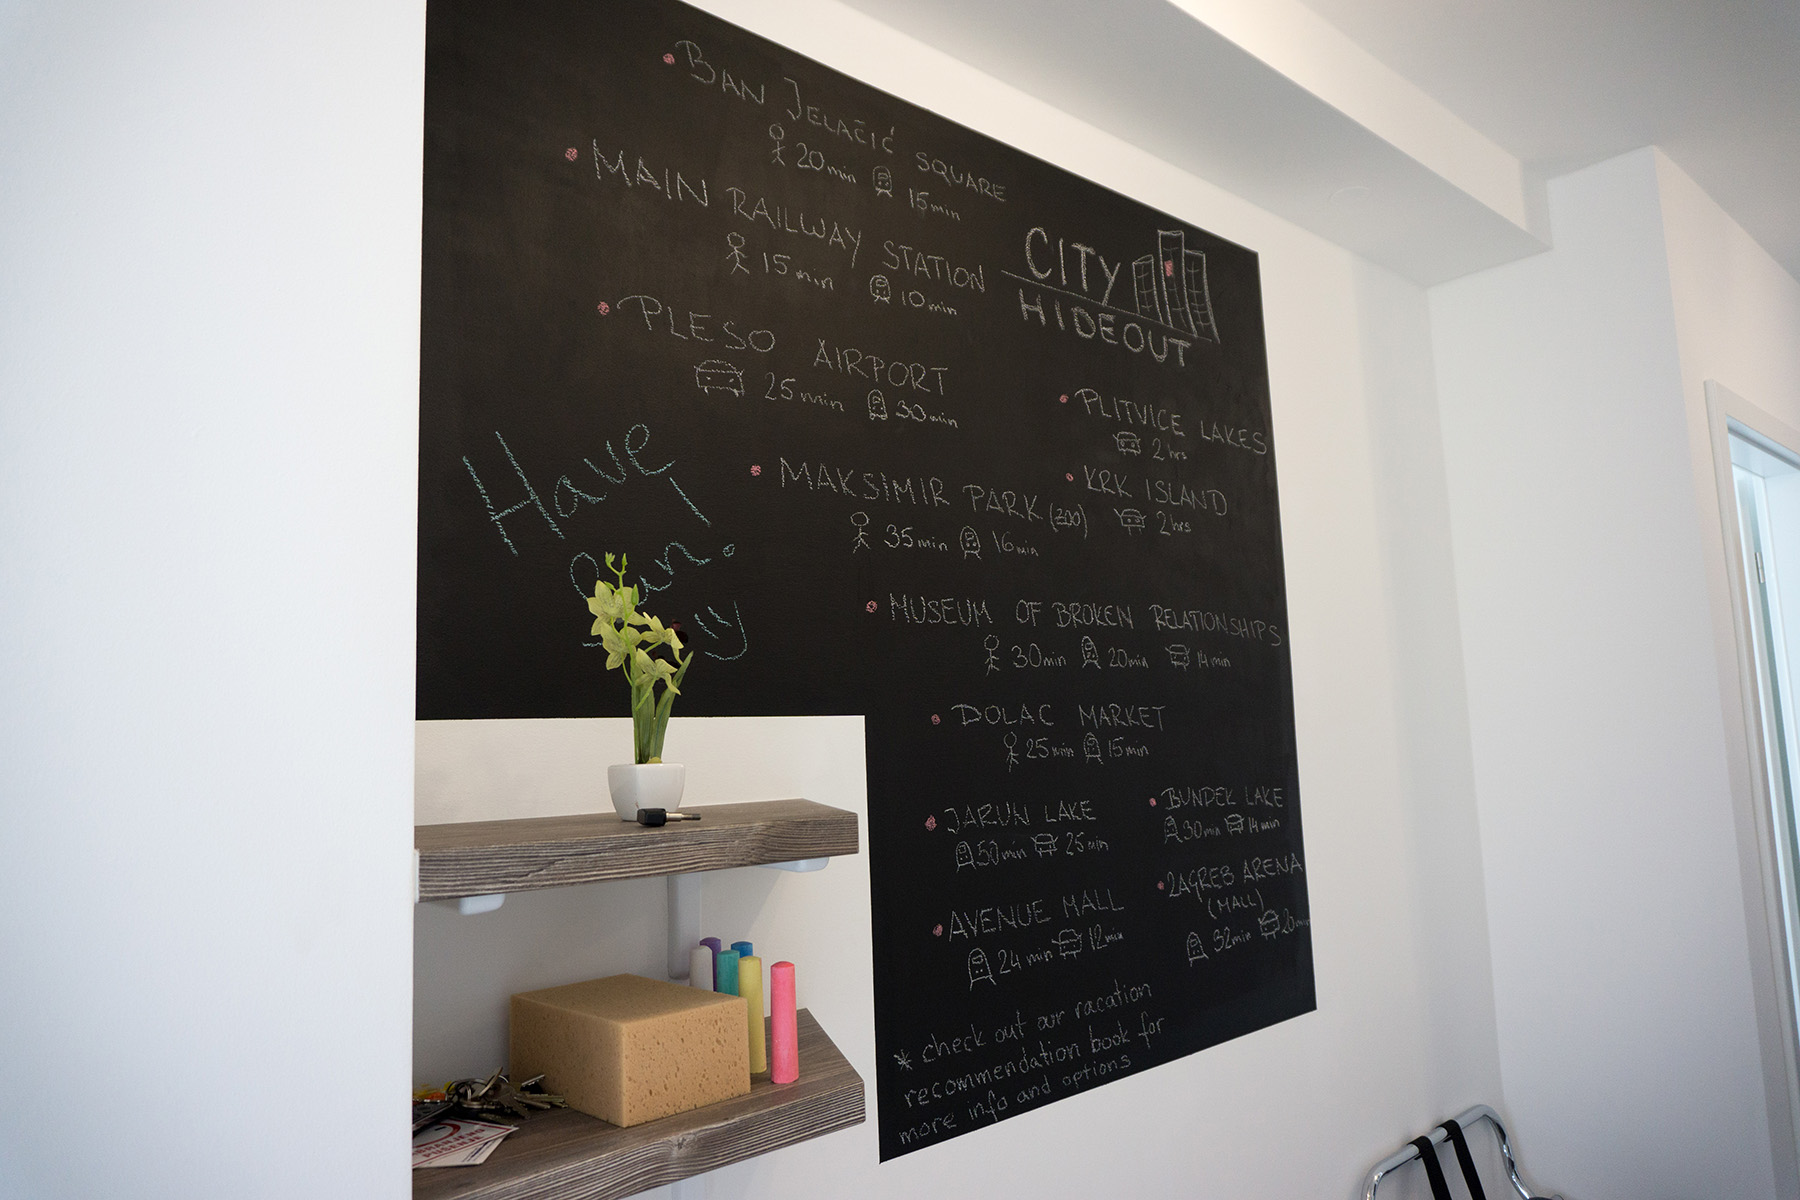 BAN JELAČIĆ SQUARE
20min 15min
MAIN RAILWAY STATION
15min 10min
PLESO AIRPORT
25min 30min
CITY
HIDEOUT
Have
fun.
PLITVICE LAKES
2hrs
KRK ISLAND
2hrs
MAKSIMIR PARK (ZOO)
35min 16min
MUSEUM OF BROKEN RELATIONSHIPS
30min 20min 14min
DOLAC MARKET
25min 15min
JARUN LAKE
50min 25min
BUNDEK LAKE
30min 14min
AVENUE MALL
24min 12min
ZAGREB ARENA
(MALL)
32min 20min
* check out our vacation
recommendation book for
more info and options